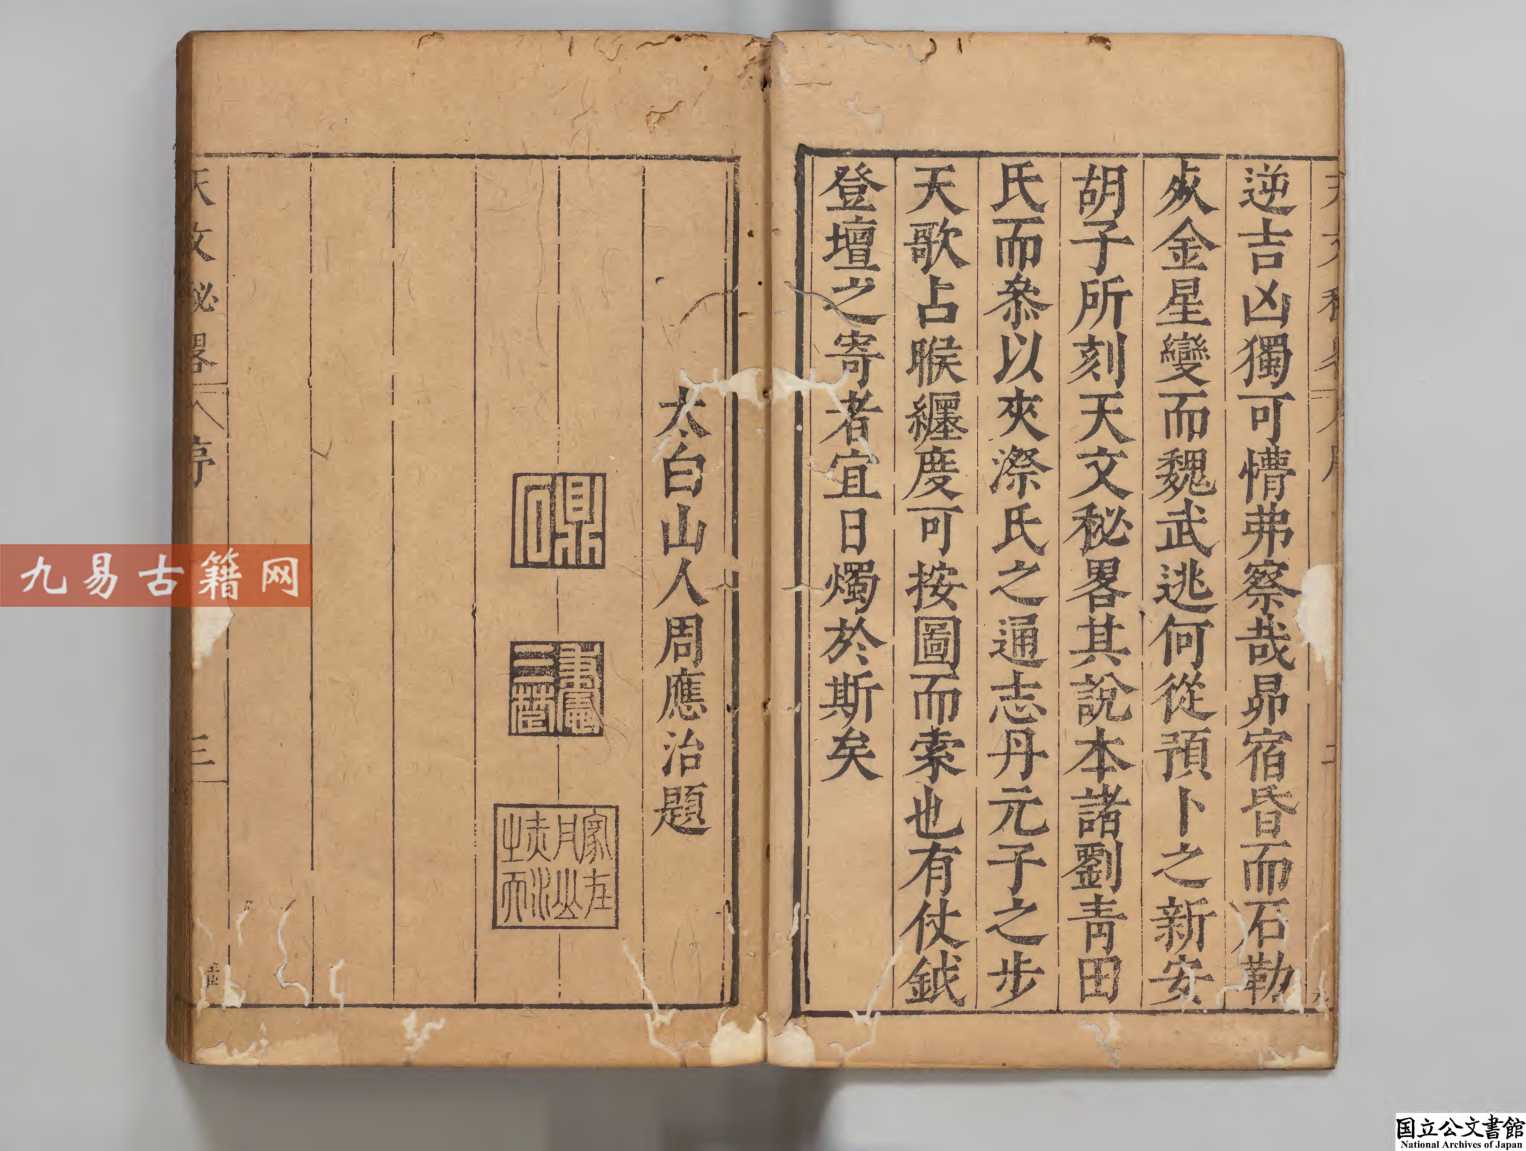 逆吉凶獨可懵弗察哉昴宿昏而石勒
死金星變而魏武逃何從預卜之新安
胡子所刻天文秘畧其說本諸劉青田
氏而叅以夾漈氏之通志丹元子之步
天歌占睺纏度可按圖而索也有仗鉞
登壇之寄者宜日燭於斯矣
太白山人周應治題
天文秘畧 序
三
九易古籍网
国立公文書館
National Archives of Japan